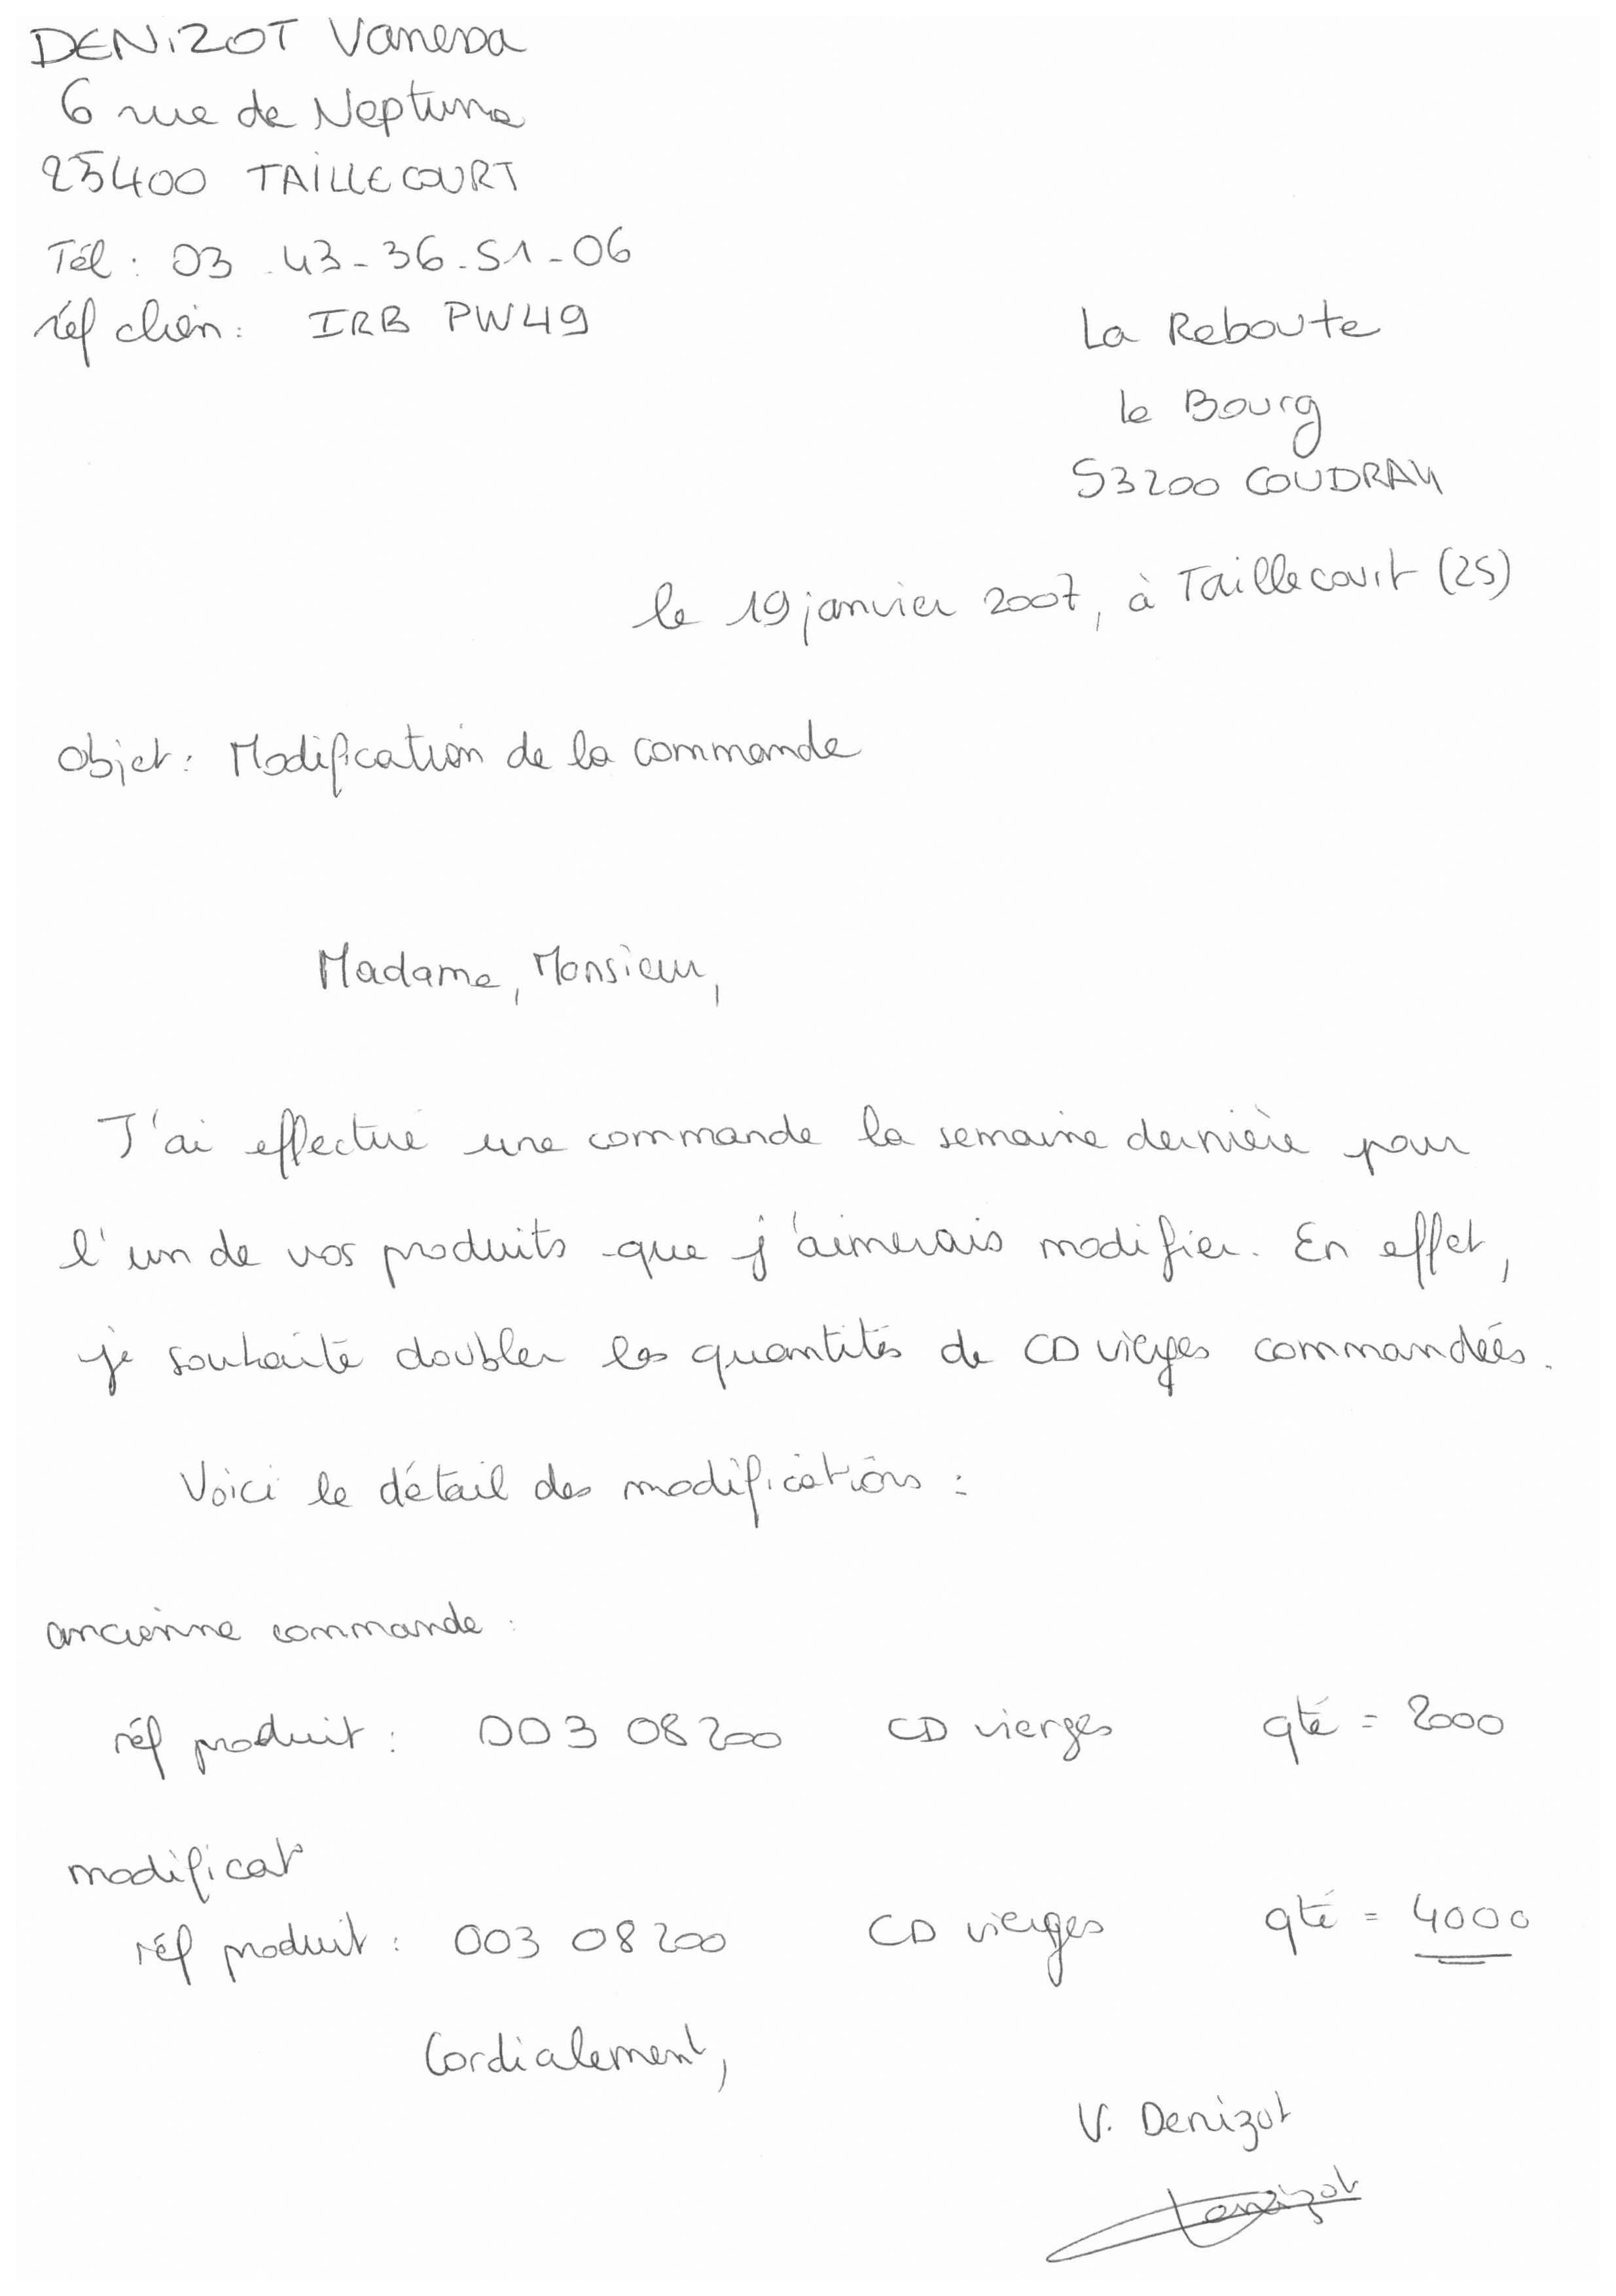 DENIZOT Vanessa
6 rue de Neptune
25400 TAILLECOURT
Tél : 03.43-36-51-06
réf clien : IRB PW49
La Reboute
le Bourg
53200 COUDRAY
le 19 janvier 2007, à Taillecourt (25)
Objet : Modification de la commande
Madame, Monsieur,
J'ai effectué une commande la semaine dernière pour
l'un de vos produits que j'aimerais modifier. En effet,
je souhaite doubler les quantités de CD vierges commandées.
Voici le détail des modifications :
ancienne commande :
réf produit : 003 08200 CD vierges qté = 2000
modificat°
réf produit : 003 08200 CD vierges qté = 4000
Cordialement,
V. Denizot
Denizot